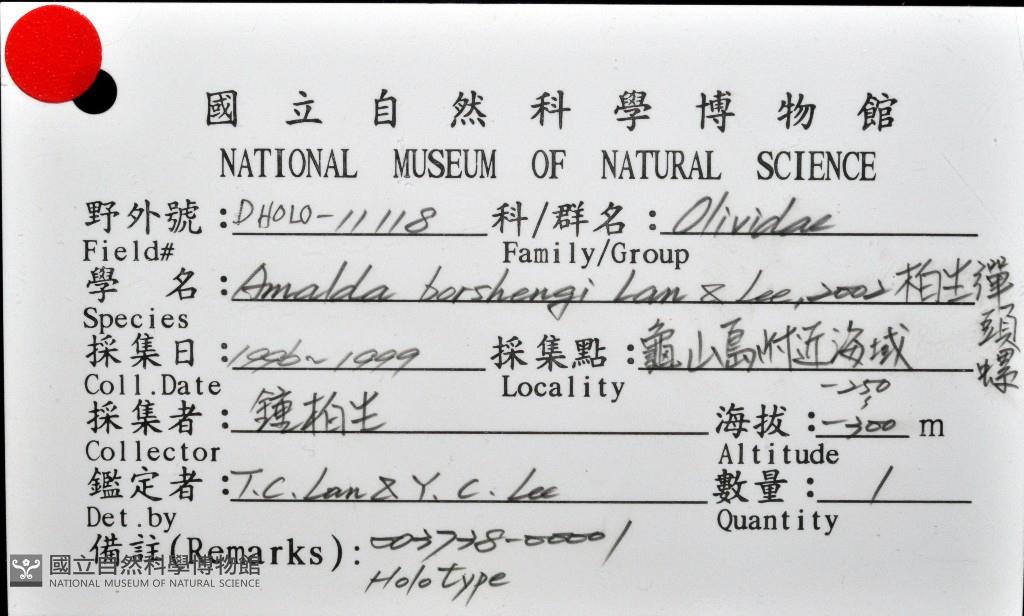 國立自然科學博物館
NATIONAL MUSEUM OF NATURAL SCIENCE
野外號：DHOLO-11118 科/群名：Olividae
Field# Family/Group
學 名：Amalda borshengi Lan & Lee, 2002 柏生彈頭螺
Species
採集日：1996~1999 採集點：龜山島附近海域
Coll.Date Locality
-250
採集者：鍾柏生 海拔：-300 m
Collector Altitude
鑑定者：T.C. Lan & Y. C. Lee 數量：1
Det.by Quantity
備註(Remarks)：003738-00001
Holotype
國立自然科學博物館
NATIONAL MUSEUM OF NATURAL SCIENCE